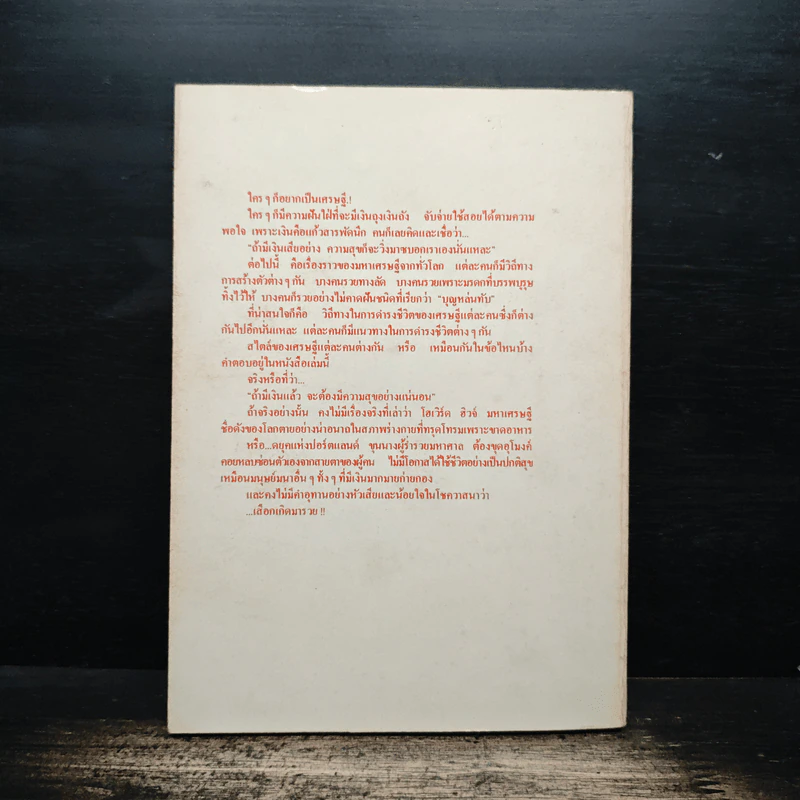 ใคร ๆ ก็อยากเป็นเศรษฐี.!
ใคร ๆ ก็มีความฝันใฝ่ที่จะมีเงินถุงเงินถัง จับจ่ายใช้สอยได้ตามความ
พอใจ เพราะเงินคือแก้วสารพัดนึก คนก็เลยคิดและเชื่อว่า...
"ถ้ามีเงินเสียอย่าง ความสุขก็จะวิ่งมาซบอกเราเองนั่นแหละ"
ต่อไปนี้ คือเรื่องราวของมหาเศรษฐีจากทั่วโลก แต่ละคนก็มีวิถีทาง
การสร้างตัวต่าง ๆ กัน บางคนรวยทางลัด บางคนรวยเพราะมรดกที่บรรพบุรุษ
ทิ้งไว้ให้ บางคนก็รวยอย่างไม่คาดฝันชนิดที่เรียกว่า "บุญหล่นทับ"
ที่น่าสนใจก็คือ วิถีทางในการดำรงชีวิตของเศรษฐีแต่ละคนซึ่งก็ต่าง
กันไปอีกนั่นแหละ แต่ละคนก็มีแนวทางในการดำรงชีวิตต่าง ๆ กัน
สไตล์ของเศรษฐีแต่ละคนต่างกัน หรือ เหมือนกันในข้อไหนบ้าง
คำตอบอยู่ในหนังสือเล่มนี้
จริงหรือที่ว่า...
"ถ้ามีเงินแล้ว จะต้องมีความสุขอย่างแน่นอน"
ถ้าจริงอย่างนั้น คงไม่มีเรื่องจริงที่เล่าว่า โฮเวิร์ด ฮิวจ์ มหาเศรษฐี
ชื่อดังของโลกตายอย่างน่าอนาถในสภาพร่างกายที่ทรุดโทรมเพราะขาดอาหาร
หรือ...ดยุคแห่งปอร์ตแลนด์ ขุนนางผู้ร่ำรวยมหาศาล ต้องขุดอุโมงค์
คอยหลบซ่อนตัวเองจากสายตาของผู้คน ไม่มีโอกาสได้ใช้ชีวิตอย่างเป็นปกติสุข
เหมือนมนุษย์มนาอื่น ๆ ทั้ง ๆ ที่มีเงินมากมายก่ายกอง
และคงไม่มีคำอุทานอย่างหัวเสียและน้อยใจในโชควาสนาว่า
...เสือกเกิดมารวย !!